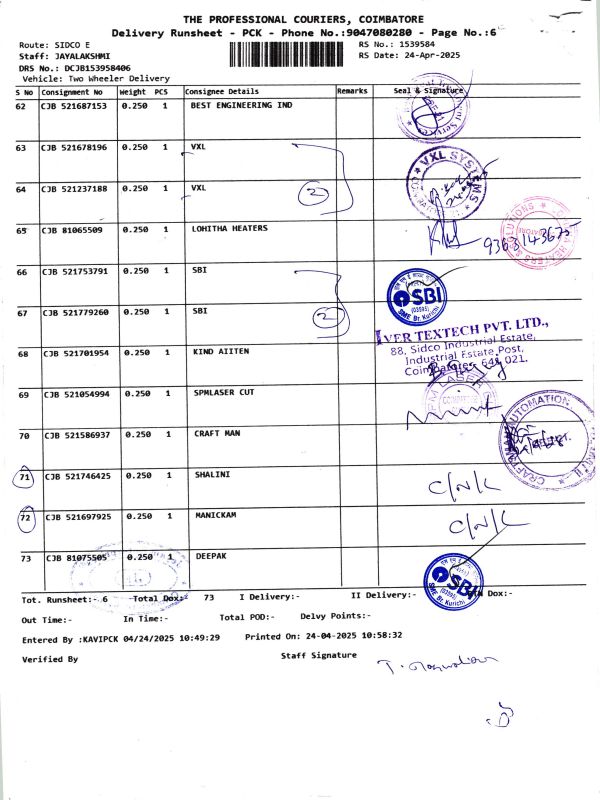 THE PROFESSIONAL COURIERS, COIMBATORE
Delivery Runsheet - PCK - Phone No.:9047080280 - Page No.:6
Route: SIDCO E
RS No.: 1539584
Staff: JAYALAKSHMI
RS Date: 24-Apr-2025
DRS No.: DCJB153958406
Vehicle: Two Wheeler Delivery
S No Consignment No Weight PCS Consignee Details Remarks Seal & Signature
62 CJB 521687153 0.250 1 BEST ENGINEERING IND
63 CJB 521678196 0.250 1 VXL
VXL SYSTEMS
64 CJB 521237188 0.250 1 VXL
2
65 CJB 81065509 0.250 1 LOHITHA HEATERS
9363143675
66 CJB 521753791 0.250 1 SBI
SBI
(03595)
SME Br. Kurichi
67 CJB 521779260 0.250 1 SBI
2
68 CJB 521701954 0.250 1 KIND AIITEN
VER TEXTECH PVT. LTD.,
88, Sidco Industrial Estate,
Industrial Estate Post,
Coimbatore - 641 021.
69 CJB 521054994 0.250 1 SPMLASER CUT
LASER
70 CJB 521586937 0.250 1 CRAFT MAN
AUTOMATION
71 CJB 521746425 0.250 1 SHALINI
C/N/L
72 CJB 521697925 0.250 1 MANICKAM
C/N/L
73 CJB 81075505 0.250 1 DEEPAK
SBI
SME Br. Kurichi
Tot. Runsheet:- 6 Total Dox:- 73 I Delivery:- II Delivery:- Dox:-
Out Time:- In Time:- Total POD:- Delvy Points:-
Entered By :KAVIPCK 04/24/2025 10:49:29 Printed On: 24-04-2025 10:58:32
Verified By Staff Signature